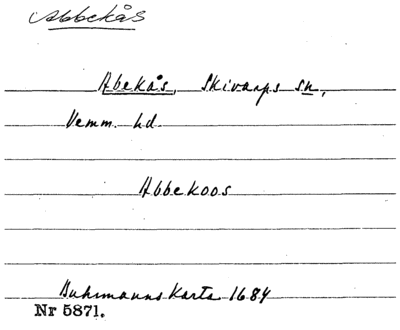 Abbekås
Abekås, Skivarps sn,
Vemm. hd
Abbekoos
Buhrmanns Karta 1684
Nr 5871.